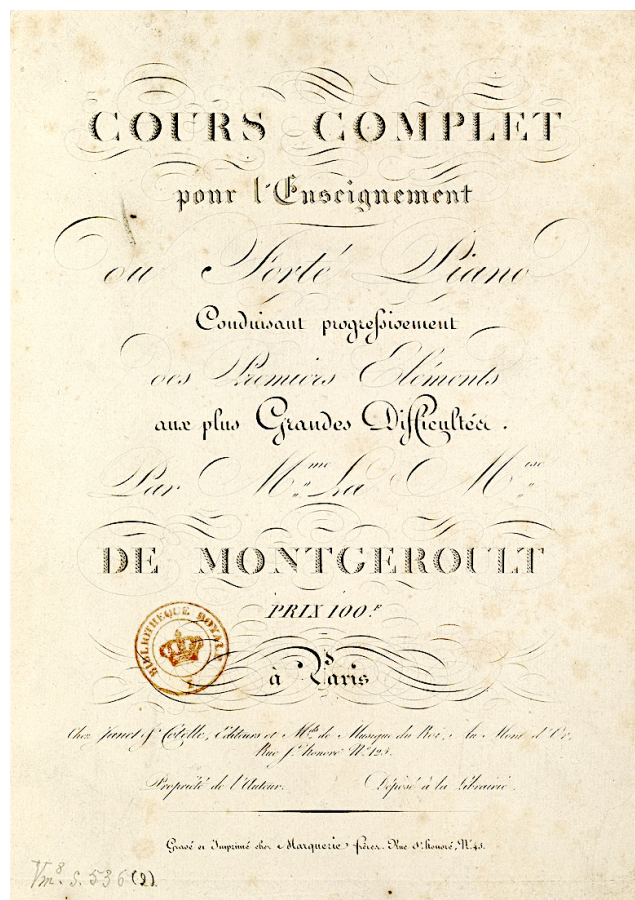 COURS COMPLET
pour l'Enseignement
du Forté Piano
Conduisant progressivement
des Premiers Eléments
aux plus Grandes Difficultés.
Par Mme La Mise
DE MONTGEROULT
PRIX 100.f
BIBLIOTHEQUE ROYALE
à Paris
Chez Janet et Cotelle, Editeurs et Mds de Musique du Roi, Au Mont d'Or,
Rue St. Honoré No. 125.
Propriété de l'Auteur. Déposé à la Librairie.
Gravé et Imprimé chez Marquerie frères. Rue St. honoré, No. 45.
Vm8. S. 536 (2)